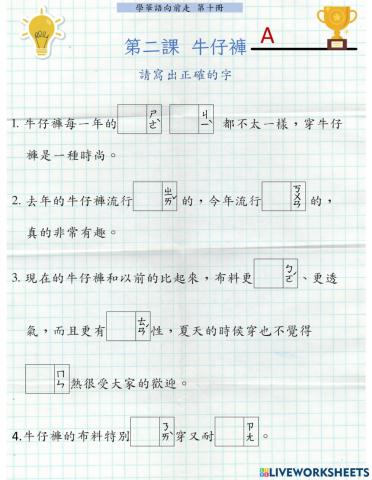 學華語向前走 第十冊
第二課 牛仔褲 A
請寫出正確的字
1. 牛仔褲每一年的 ㄕㄜˋ ㄐㄧˋ 都不太一樣，穿牛仔
褲是一種時尚。
2. 去年的牛仔褲流行 ㄓㄞˇ 的，今年流行 ㄎㄨㄢ 的，
真的非常有趣。
3. 現在的牛仔褲和以前的比起來，布料更 ㄅㄛˊ、更透
氣，而且更有 ㄊㄢˊ 性，夏天的時候穿也不覺得
ㄇㄣ 熱很受大家的歡迎。
4.牛仔褲的布料特別 ㄋㄞˋ 穿又耐 ㄗㄤ 。
LIVEWORKSHEETS